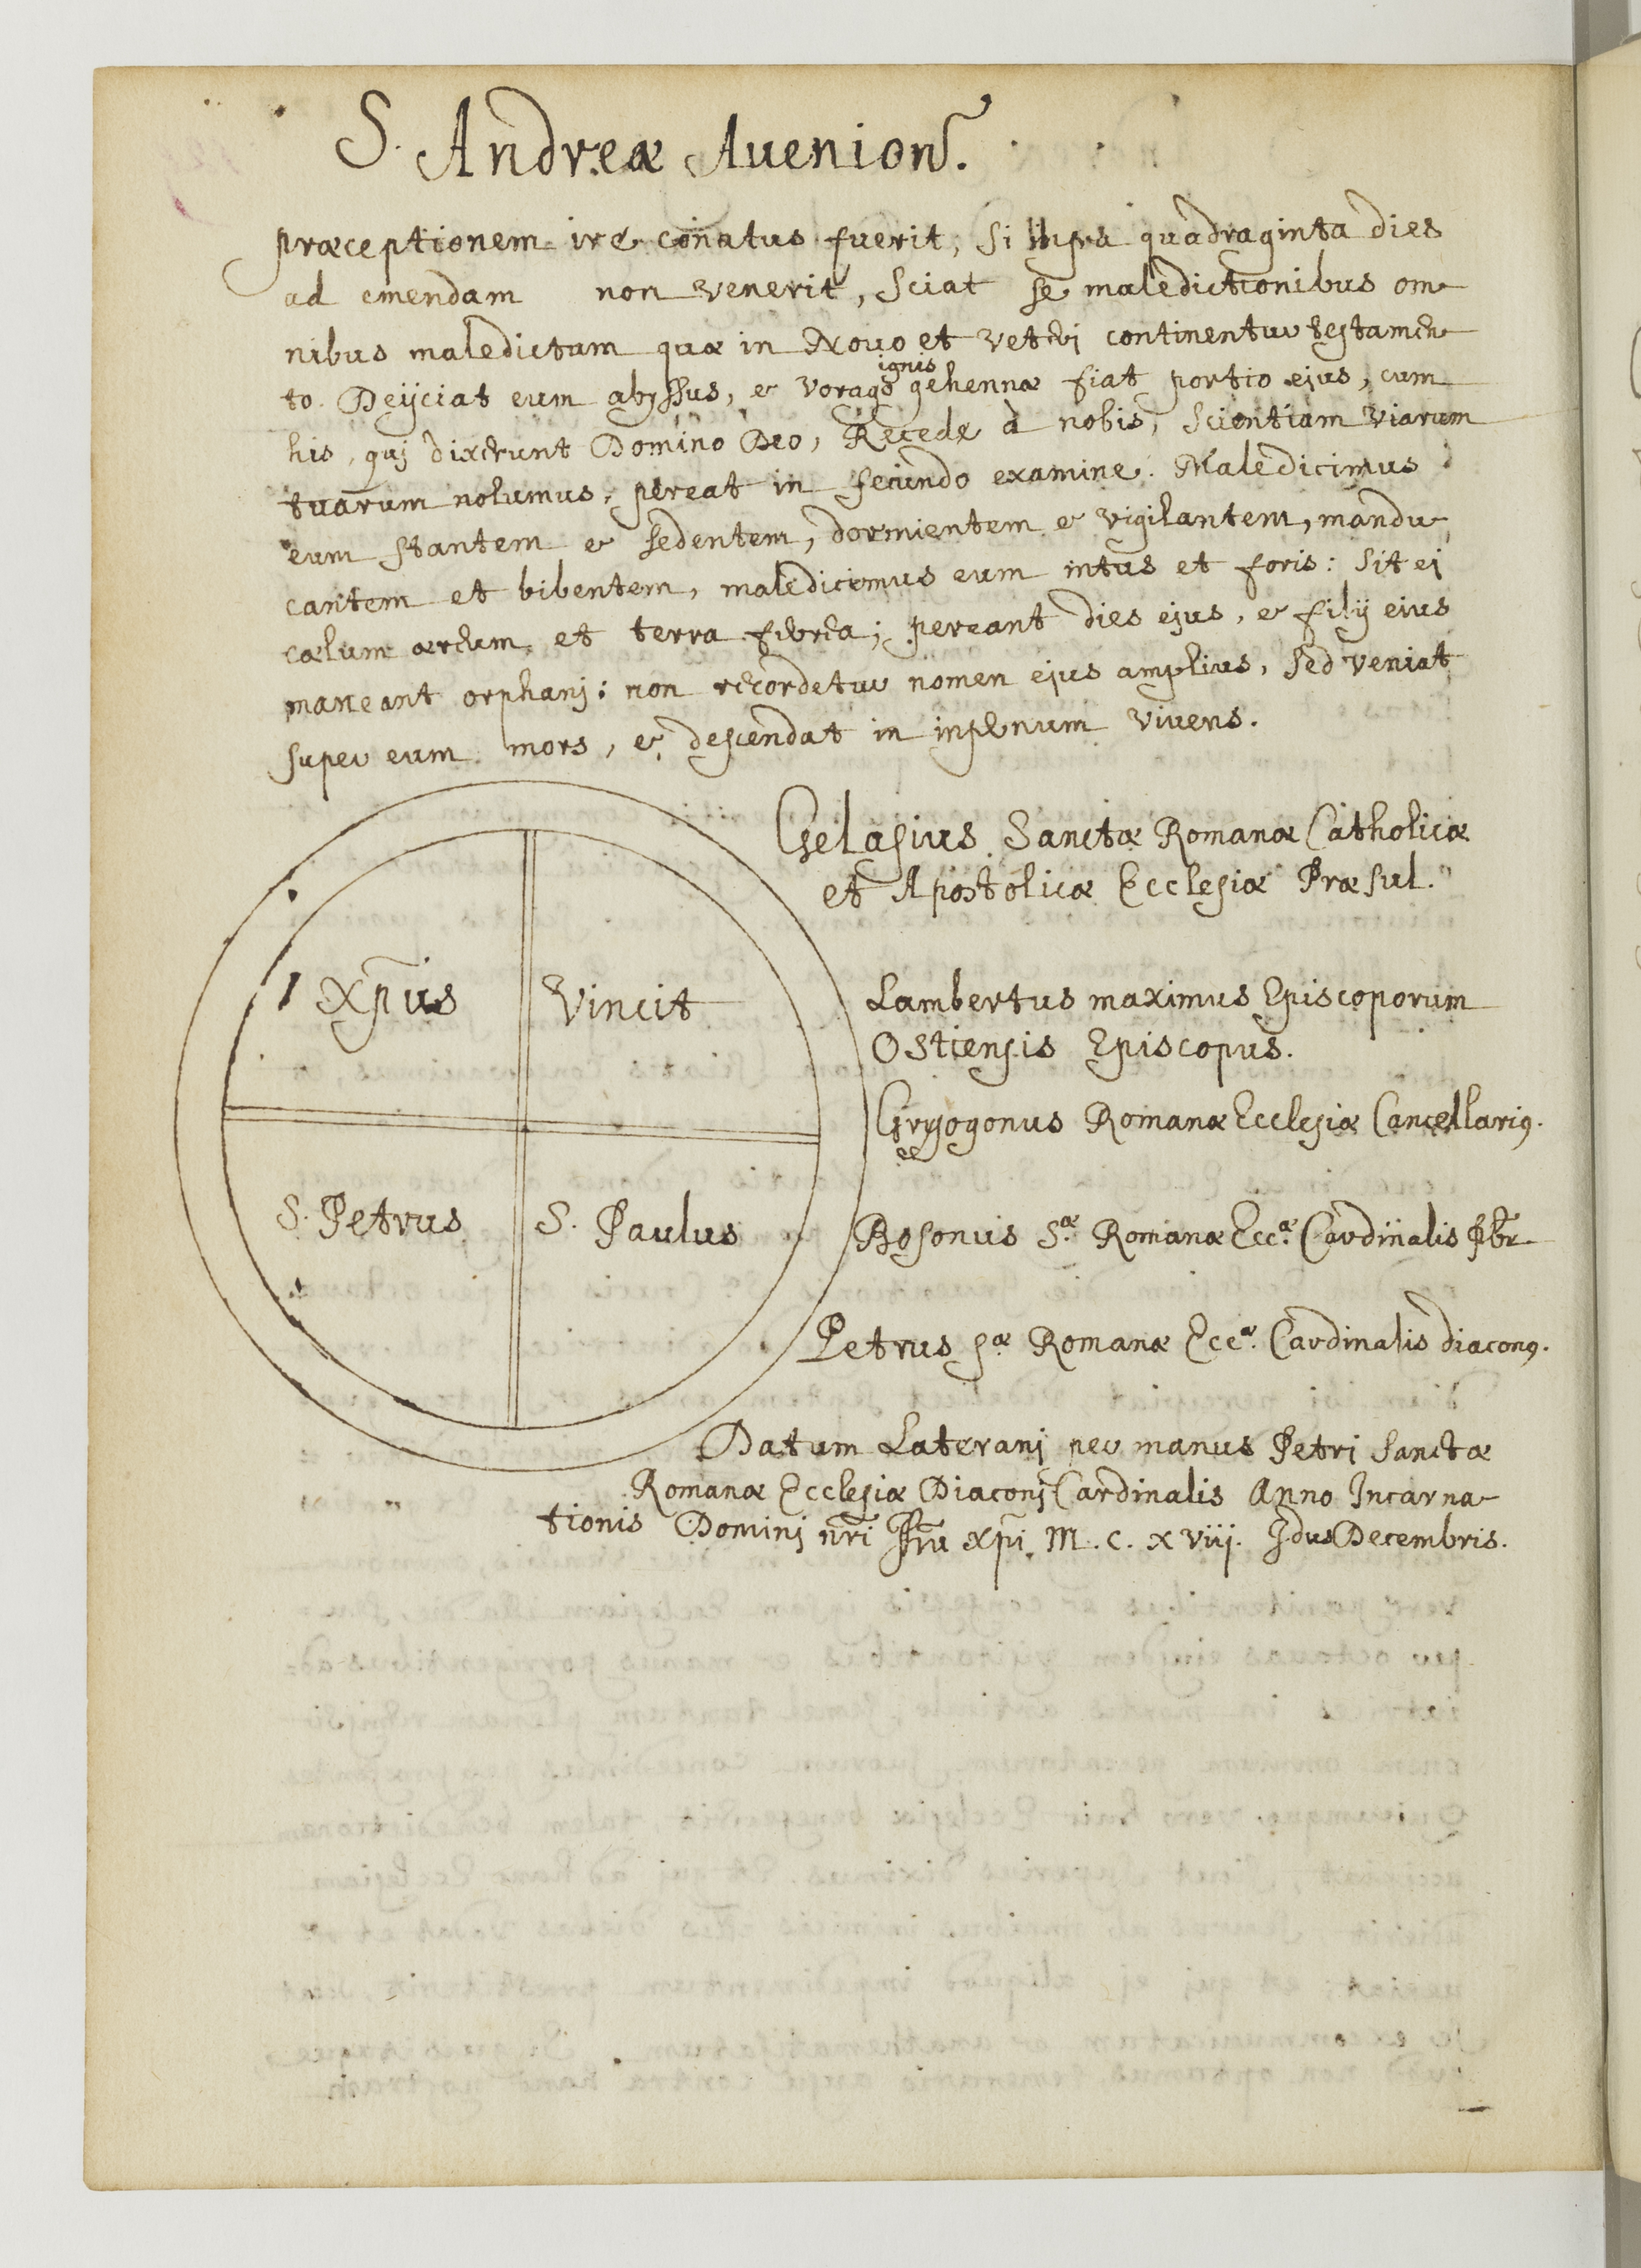 S. Andreæ Auenion.
præceptionem ire conatus fuerit, si supra quadraginta dies
ad emendam non venerit, sciat se maledictionibus om
nibus maledictum quæ in Nouo et veteri continentur testamen
to. Deijciat eum abyssus, et vorago ignis gehennæ fiat portio ejus, cum
his, quj dixerunt Domino Deo, Recede à nobis, scientiam viarum
tuarum nolumus, pereat in secundo examine. Maledicimus
eum stantem et sedentem, dormientem et vigilantem, mandu
cantem et bibentem, maledicimus eum intus et foris: sit ei
cælum æreum, et terra ferrea; pereant dies ejus, et filij eius
maneant orphanj: non recordetur nomen ejus amplius, sed veniat
super eum mors, et descendat in infernum vivens.
Gelasius Sanctæ Romanæ Catholicæ
et Apostolicæ Ecclesiæ Præsul.
Xpus Vincit
Lambertus maximus Episcoporum
Ostiensis Episcopus.
Grysogonus Romanæ Ecclesiæ Cancellarius.
S. Petrus S. Paulus
Bosonus Sæ. Romanæ Eccæ. Cardinalis Pbr
Petrus Sæ Romanæ Eccæ. Cardinalis diaconus.
Datum Lateranj per manus Petri Sanctæ
Romanæ Ecclesiæ Diaconj Cardinalis Anno Incarna
tionis Dominj nri Xpi M. C. xviij. Idus Decembris.